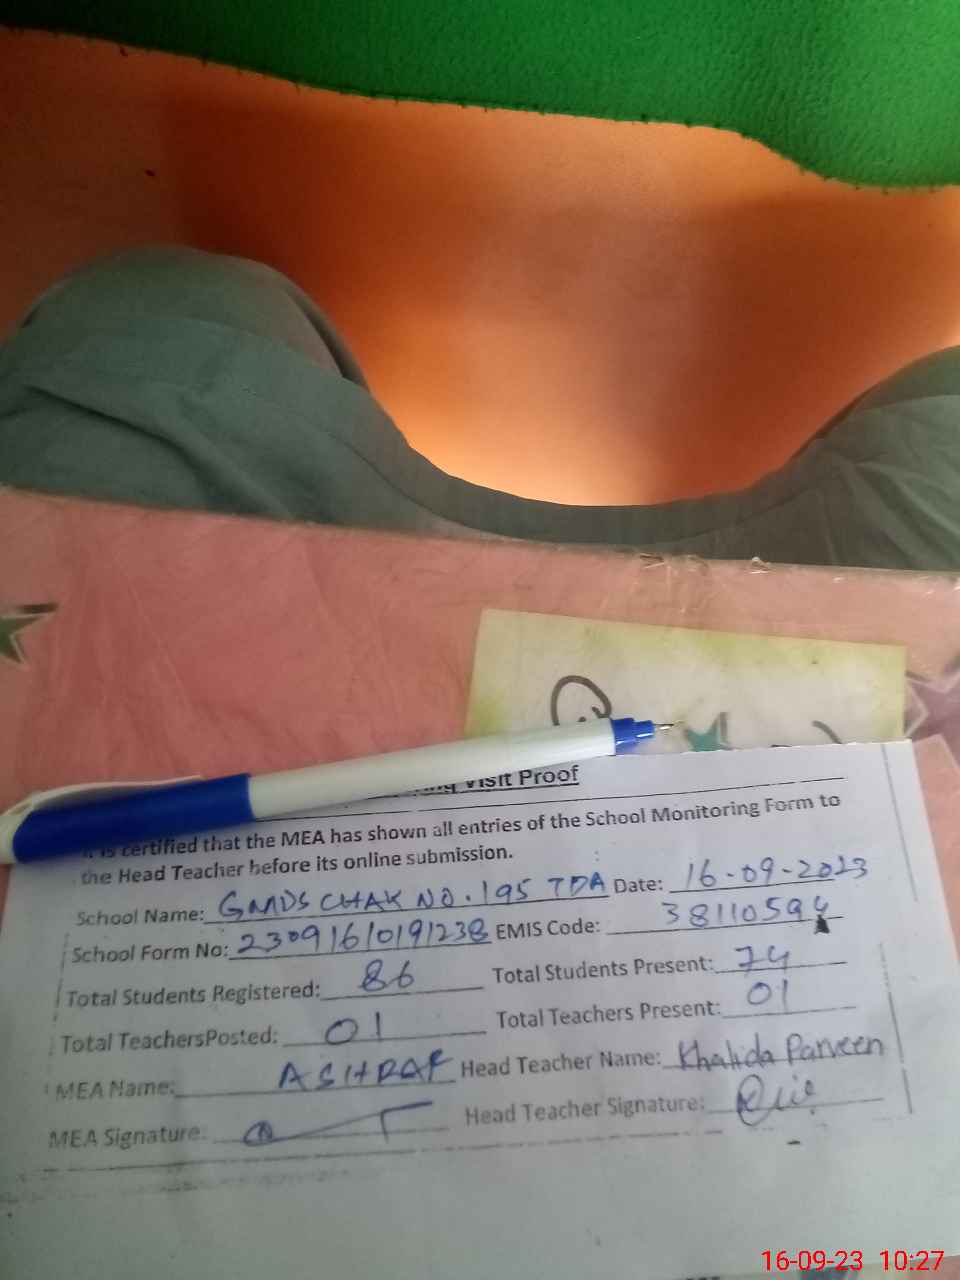 Visit Proof
is certified that the MEA has shown all entries of the School Monitoring Form to
the Head Teacher before its online submission.
School Name: GMDS CHAK NO. 195 TDA Date: 16-09-2023
School Form No: 23091610191238 EMIS Code: 38110594
Total Students Registered: 86 Total Students Present: 74
Total TeachersPosted: 01 Total Teachers Present: 01
MEA Name: ASHRAF Head Teacher Name: Khalida Parveen
MEA Signature: Head Teacher Signature:
16-09-23 10:27